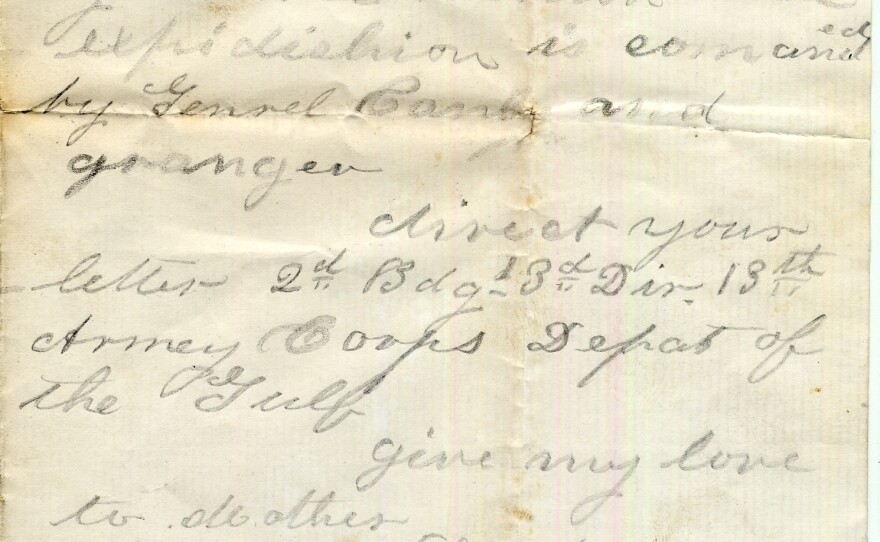 expidishion is comanded
by Genrel Canby and
granger
direct your
letter 2d Bdg 3d Div. 13th
Armey Corps Depat of
the Gulf
give my love
to